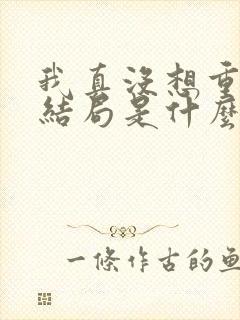 我真没想重
結局是什麼
一條作古的魚